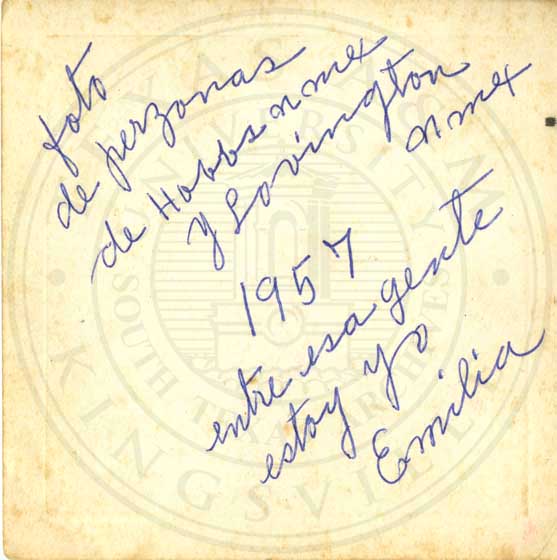 foto
de perzonas
de Hobbs n mex
y Lovington
n mex
1957
entre esa gente
estoy yo
Emilia
TEXAS A&M UNIVERSITY
KINGSVILLE
SOUTH TEXAS ARCHIVES